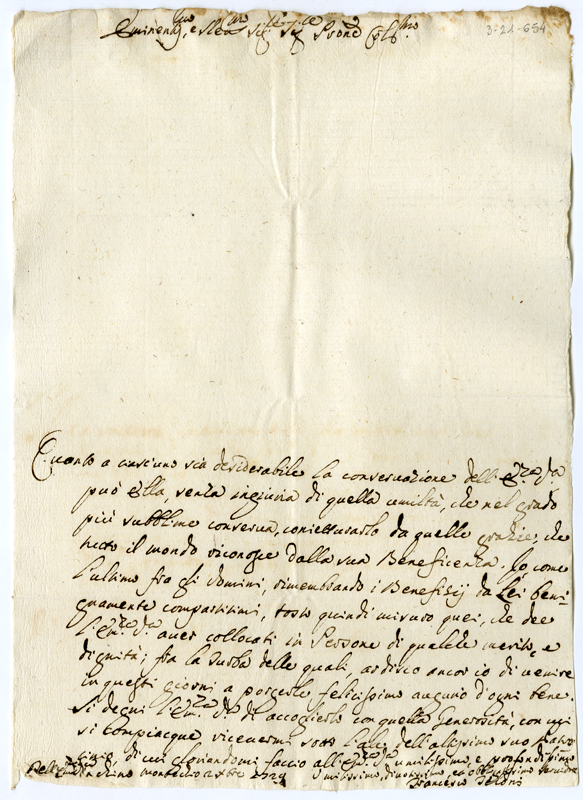 3-21-654
Eminen.mo, e Rev.mo Sig.re Sig.re P.rone Col.mo
Quanto a ciascuno sia desiderabile la conservazione dell' E.za V.ra
può Ella, senza ingiuria di quella umiltà, che nel grado
più subblime conserva, conietturarlo da quelle grazie, che
tutto il mondo riconosce dalla sua Beneficenza. Io come
l'ultimo fra gli domini, rimembrando i Beneficij da Lei beni=
gnamente compartitimi, tosto quindi misuro quei, che dee
l'Em.za V.ra aver collocati in Persone di qualche merito, e
dignità; fra la turba delle quali ardisco ancor io di venire
in questi giorni a porgerle felicissimo augurio d'ogni bene.
Si degni l'Em.za V.ra di accoglierlo con quella Generosità, con cui
si compiacque ricevermi sotto l'ali dell'altissimo suo Patro=
cinio, di cui gloriandomi faccio all'Em.za V.ra umilissimo, e profondissimo
inchino
Umilissimo, divotissimo, ed obbligatissimo servitore
Francesco